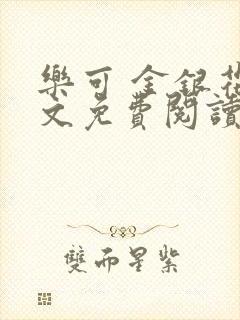 樂可 金銀花
文免費閱讀
雙而星紫